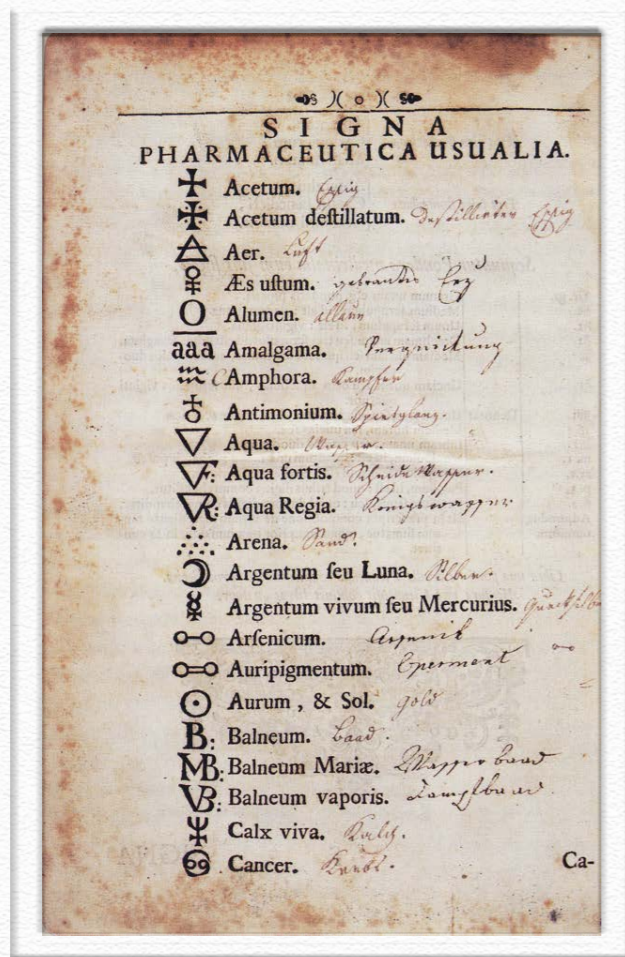 SIGNA
PHARMACEUTICA USUALIA.
Acetum. Essig
Acetum deſtillatum. destillirter Essig
Aer. Luft
Æs uſtum. gebrantes Erz
O Alumen. Allaun
aaa Amalgama. Verquickung
CAmphora. Kampfer
Antimonium. Spiesglanz.
Aqua. Wasser.
F: Aqua fortis. Scheide Wasser.
R: Aqua Regia. Königswasser
Arena. Sand.
Argentum ſeu Luna. Silber.
Argentum vivum ſeu Mercurius. Quecksilber
Arſenicum. Arsenik
Auripigmentum. Operment
Aurum, & Sol. Gold
B: Balneum. Baad.
MB: Balneum Mariæ. Wasserbaad
VB: Balneum vaporis. Dampfbaad
Calx viva. Kalch.
Cancer. Krebs.
Ca-